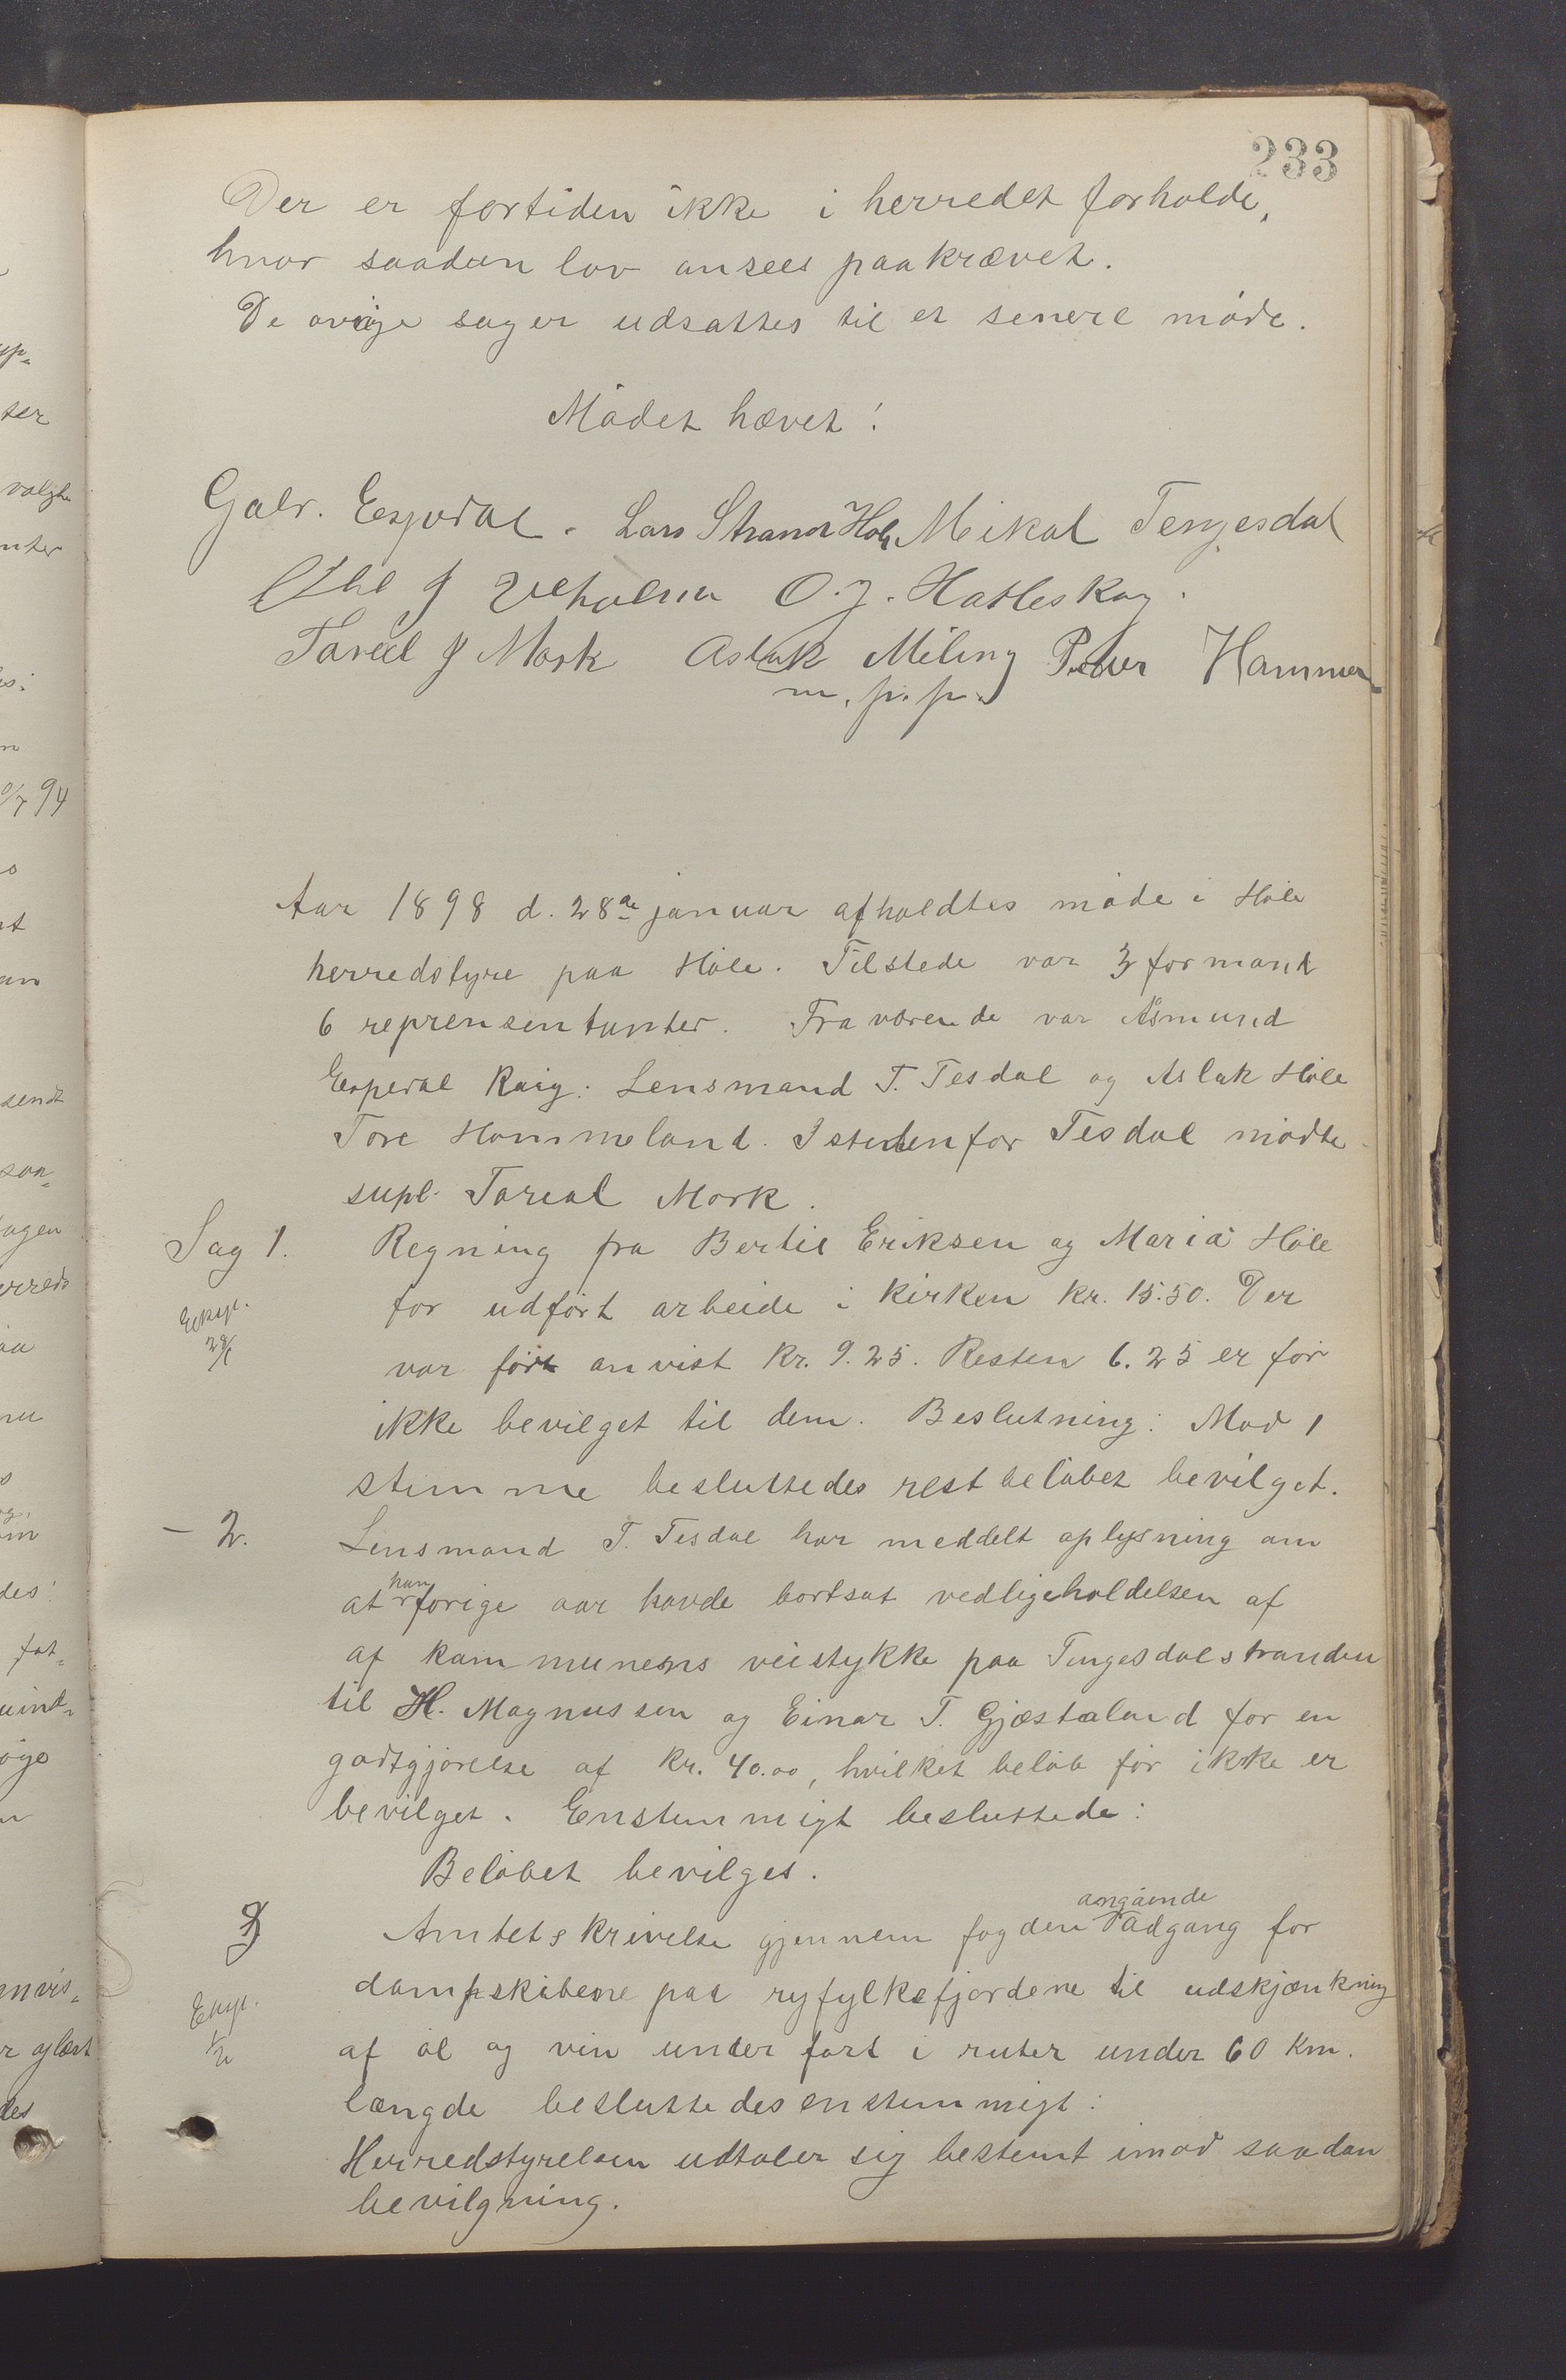 233
Der er fortiden ikke i herredet forholde,
hvor saadan lov ansees paakrævet.
De øvrige sager udsattes til et senere møde.
Mødet hævet!
Gabr. Espedal. Lars Strand Høle Mikal Tengesdal
O. J. Hatleskog.
Toreld J Mork Aslak Meling Peder Hammer
m. p. p.
Aar 1898 d. 28de januar afholdtes møde i Høle
herredstyre paa Høle. Tilstede var 3 formand
6 reprensentanter. Fraværende var Åsmund
Espedal Raig. Lensmand T. Tesdal og Aslak Høle
Tore Hommeland. Istedenfor Tesdal mødte
supl. Toreal Mork.
Sag 1. Regning fra Bertil Eriksen og Maria Høle
for udført arbeide i kirken kr. 15.50. Der
Exsp. 29/1
var før anvist kr. 9.25. Resten 6.25 er før
ikke bevilget til dem. Beslutning: Mod 1
stemme besluttedes restbeløbet bevilget.
- 2. Lensmand T. Tesdal har meddelt oplysning om
at han forige aar havde bortsat vedligeholdelsen af
af kommunens veistykke paa Tengesdalstranden
til H. Magnussen og Einar T. Gjæstaland for en
godtgjørelse af kr. 40.00, hvilket beløb før ikke er
bevilget. Enstemmigt besluttede:
Beløbet bevilges.
3 Amtets krivelse gjennem fogden angående adgang for
dampskibene paa ryfylkefjordene til udskjænkning
Exsp. 1/2
af øl og vin under fart i ruter under 60 km.
længde besluttedes enstemmigt:
Herredstyrelsen udtaler sig bestemt imod saadan
bevilgning.